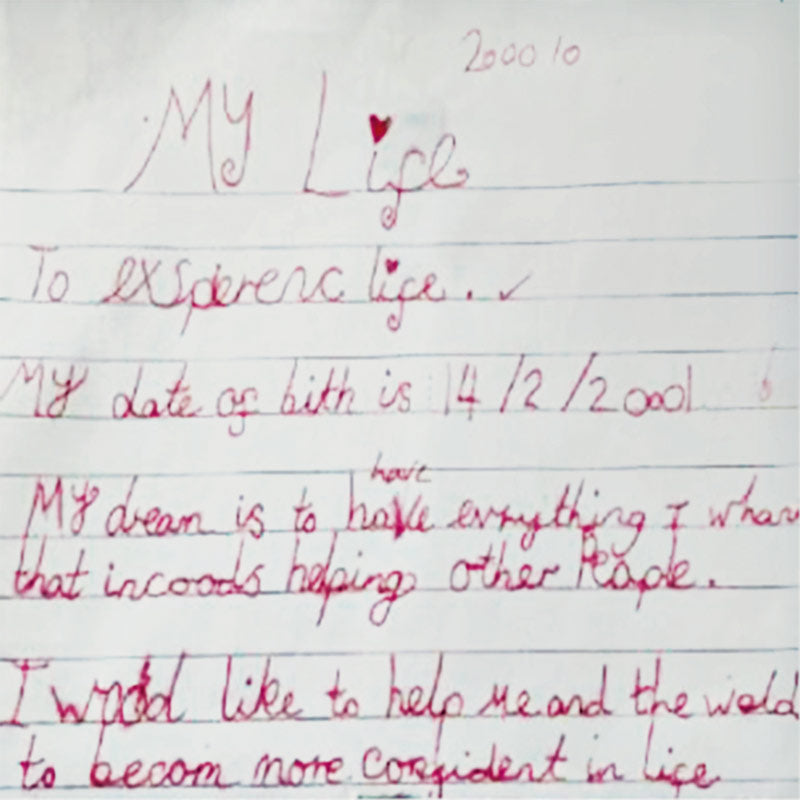 200010
My Life
To exsperenc life.
My date of bith is 14/2/2001
have
My dream is to have evrything I whan
that incoods helping other Peaple.
I would like to help me and the wold
to becom more confident in life